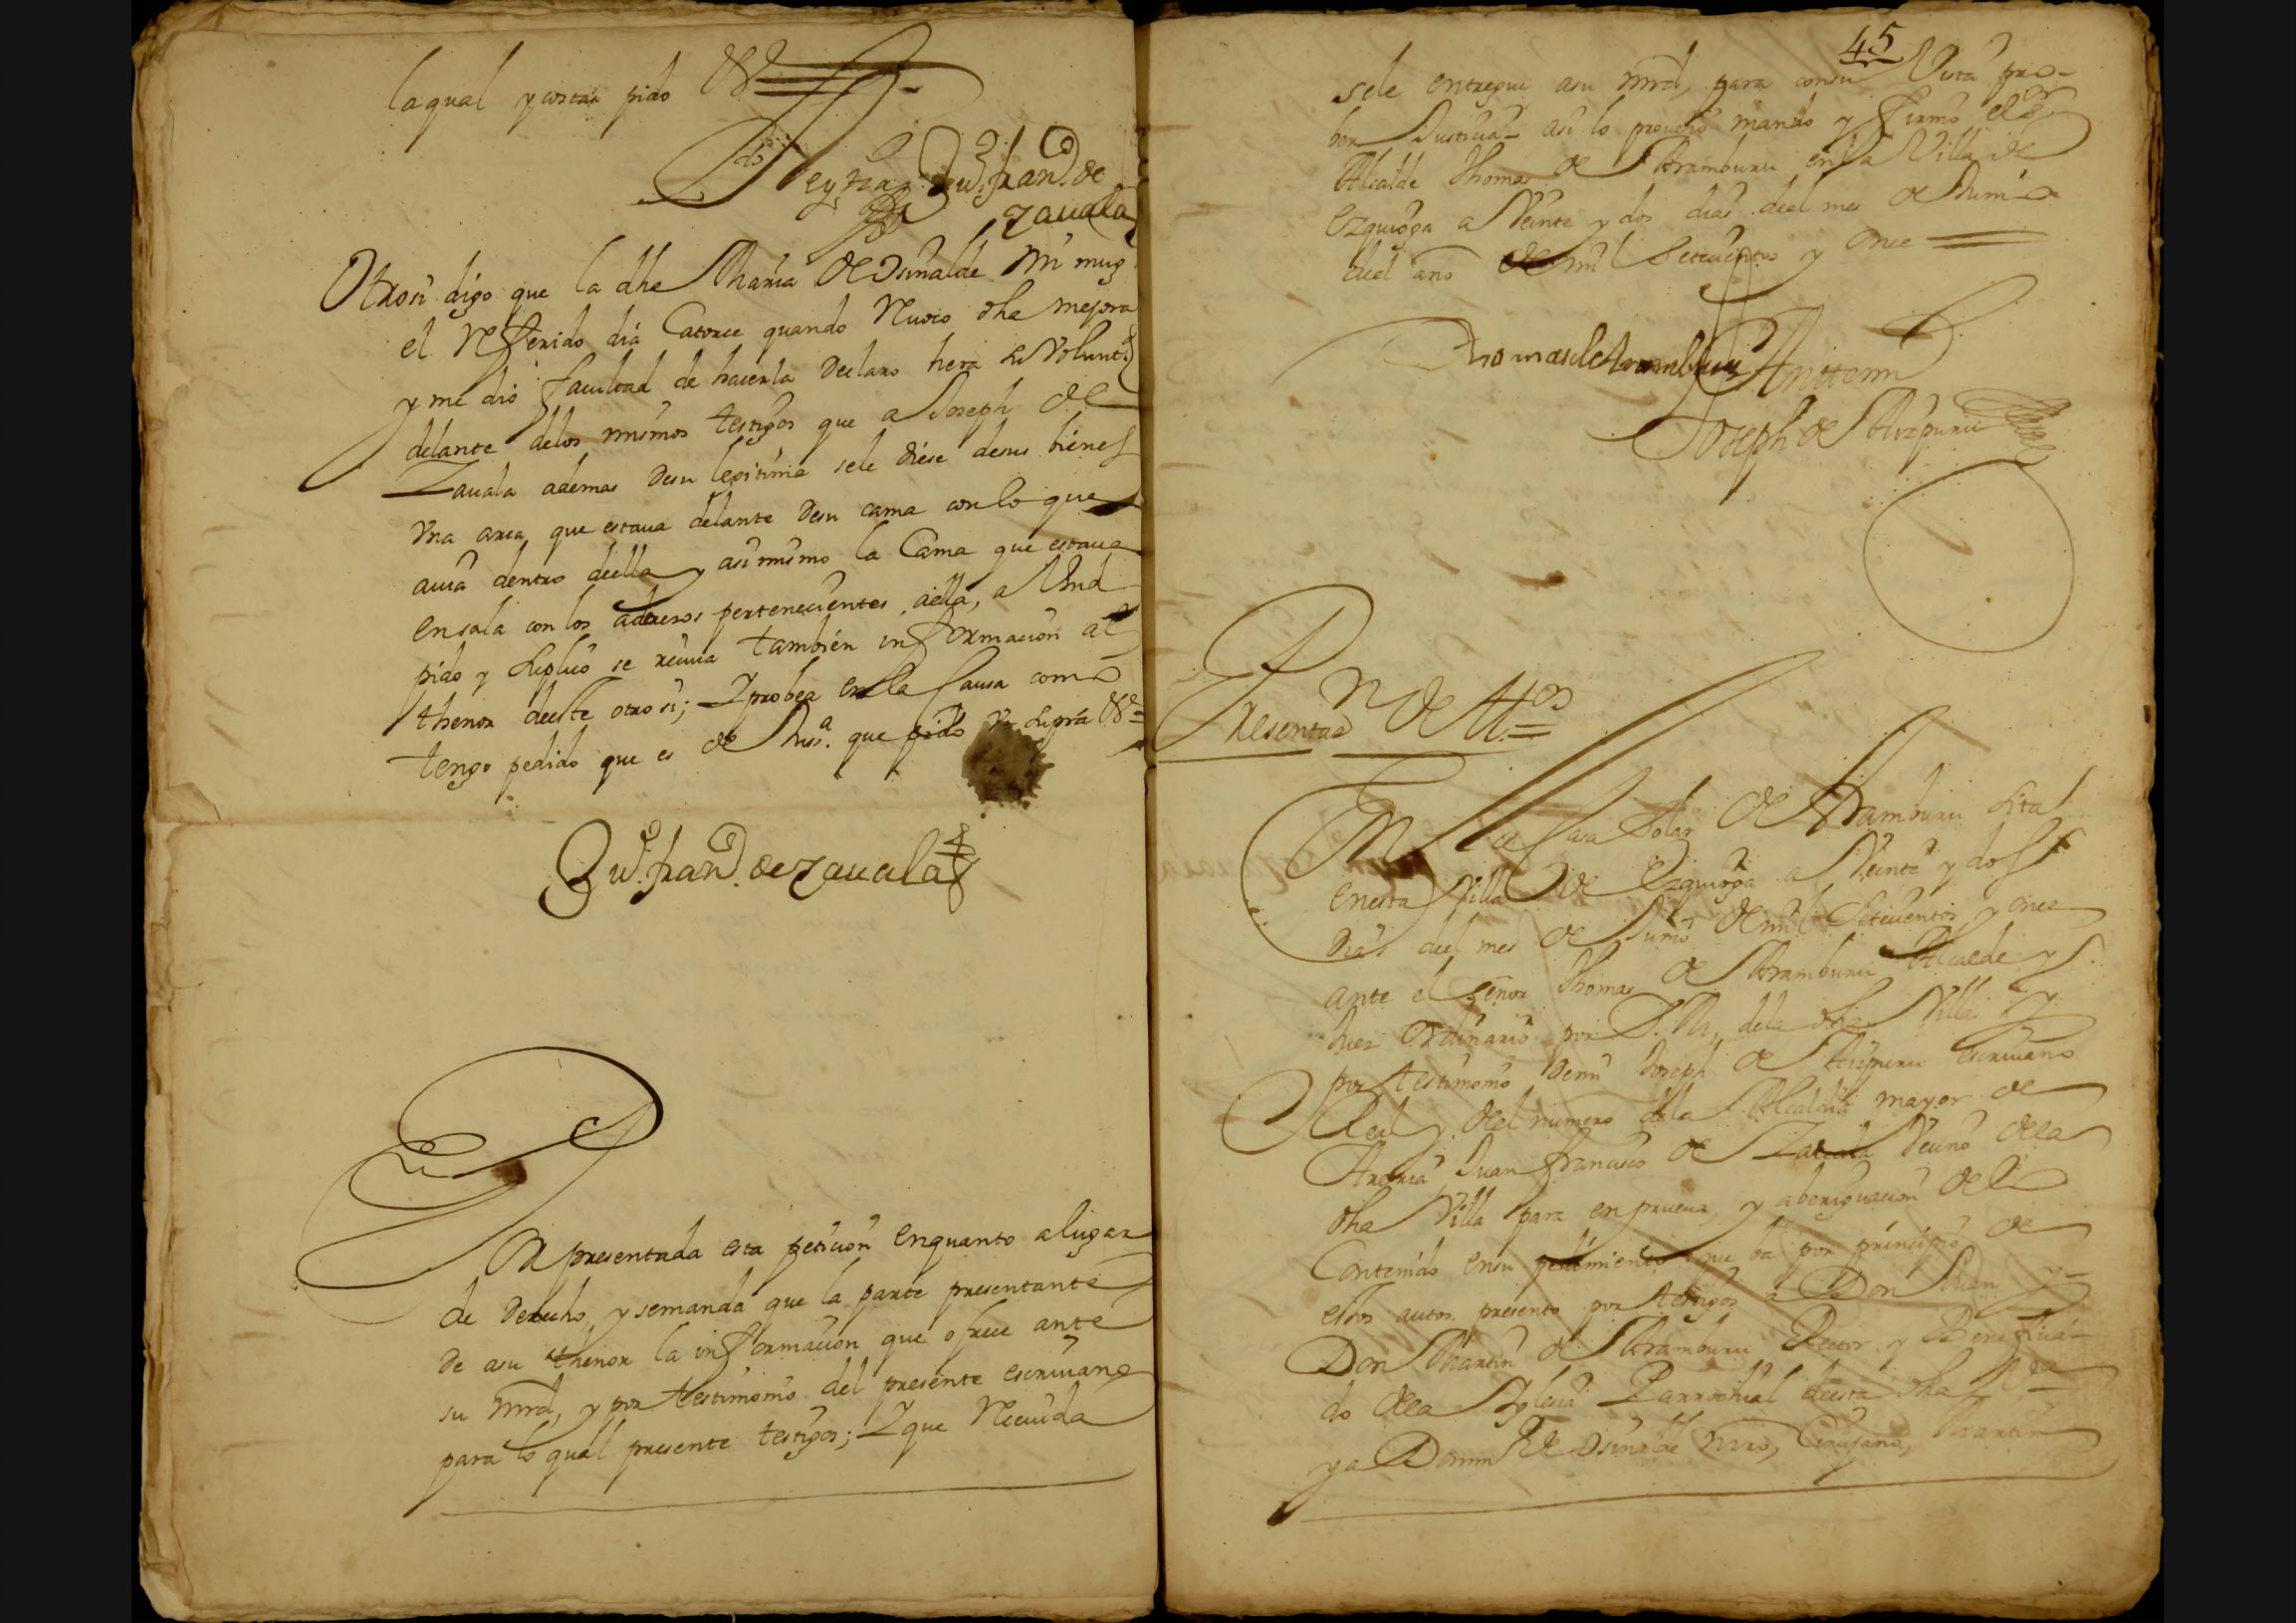 la qual y costas pido &ª
Ldo Reyzaz
Juº. franº. de
zauala
Otrosi digo que la dhe Maria de Osinalde mi mug.
el Referido dia Catorce quando Nuoio dha mejora
y me dio facultad de hacerla Declaro hera su Volunt.d
delante delos mismos testigos que a Joseph de
Zauala ademas desu legitima sele diese desus bienes
Vna arca que estaua delante desu cama con lo que
auia dentro deella y asi mismo la Cama que estaua
en sala con los adrezos pertenecientes aella, a Vmd
pido y suplico se reciua tambien informacion al
thenor deeste otro si; Y probea en la Causa como
tengo pedido que es de Jusª. que pido Vt supra &ª
Juº. franº. de zauala
Por presentada esta peticion enquanto a lugar
de derecho, y semanda que la parte presentante
de asu thenor la informacion que ofrece ante
su mrd, y por testimonio del presente escriuano
para lo qual presente testigos; Y que Reciuida
45
sele entregue asu mrd, para consu Vista pro-
ber Justicia = asi lo proueyo mando y firmo el sr
Alcalde Thomas de Aramburu en la Villa de
Ezquioga a Veinte y dos dias deel mes de Junio
deel año de mil Setecientos y Once
Thomas de Aramburu
Antemi
Joseph de Aizpuru
Presentaon de ttos
En la Casa Solar de Aramburu sita
enesta Villa de Ezquioga a Veinte y dos
Dias deel mes de Junio de mil Setecientos y once
ante el señor Thomas de Aramburu Alcalde y
Juez Ordinario por S. M. dela dha Villa y
por testimonio demi Joseph de Aizpuru escriuano
Real y del numero dela Alcaldia mayor de
Areria Juan francisco de Zauala Vecino dela
dha Villa para en prueua, y aberiguacion del
Contenido ensu pedimiento que ba por principio de
estos autos presento por testigos a Don Juan y
Don Martin de Aramburu Rector y Beneficia-
do dela Yglesia Parrochial deesta dha Vª
y a Domin de Osinalde mro, Cirujano, Martin